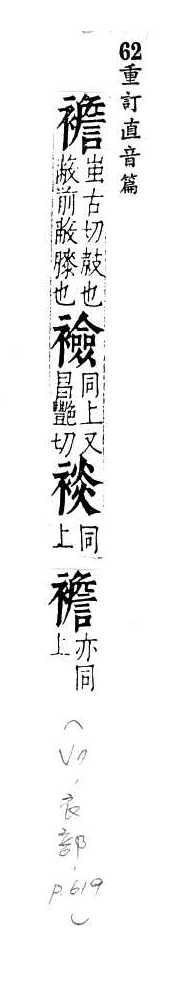 62重訂直音篇
襜 蚩占切蔽也
蔽前蔽膝也
襝 同上又
昌艷切
裧 同
上
襜 亦同
上
衣部、p.619